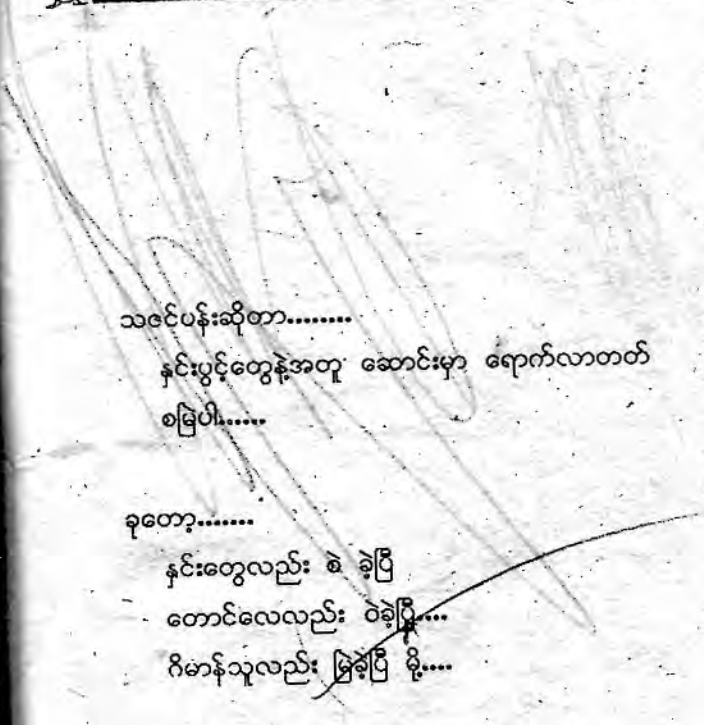 သဇင်ပန်းဆိုတာ.........
နှင်းပွင့်တွေနဲ့အတူ ဆောင်းမှာ ရောက်လာတတ်
စမြဲပါ......
ခုတော့.......
နှင်းတွေလည်း စဲ ခဲ့ပြီ
တောင်လေလည်း ဝဲခဲ့ပြီ....
ဂိမာန်သူလည်း မြဲခဲ့ပြီ မို့....